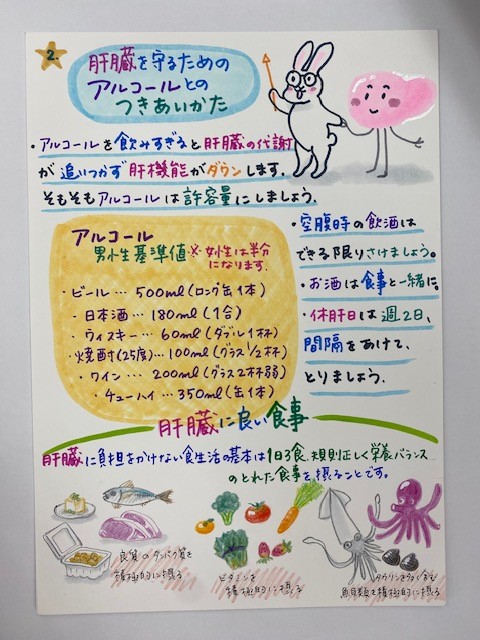 2.
肝臓を守るための
アルコールとの
つきあいかた
・アルコールを飲みすぎると肝臓の代謝
が追いつかず肝機能がダウンします。
そもそもアルコールは許容量にしましょう。
アルコール
男性基準値※女性は半分
になります。
・ビール…500ml(ロング缶1本)
・日本酒…180ml(1合)
・ウィスキー…60ml(ダブル1杯)
・焼酎(25度)…100ml(グラス1/2杯)
・ワイン…200ml(グラス2杯弱)
・チューハイ…350ml(缶1本)
・空腹時の飲酒は
できる限りさけましょう。
・お酒は食事と一緒に。
・休肝日は週2日、
間隔をあけて、
とりましょう。
肝臓に良い食事
肝臓に負担をかけない食生活の基本は1日3食、規則正しく栄養バランス
のとれた食事を摂ることです。
良質のタンパク質を
積極的に摂る
ビタミンを
積極的に摂る
タウリンを多く含む
魚貝類を積極的に摂る